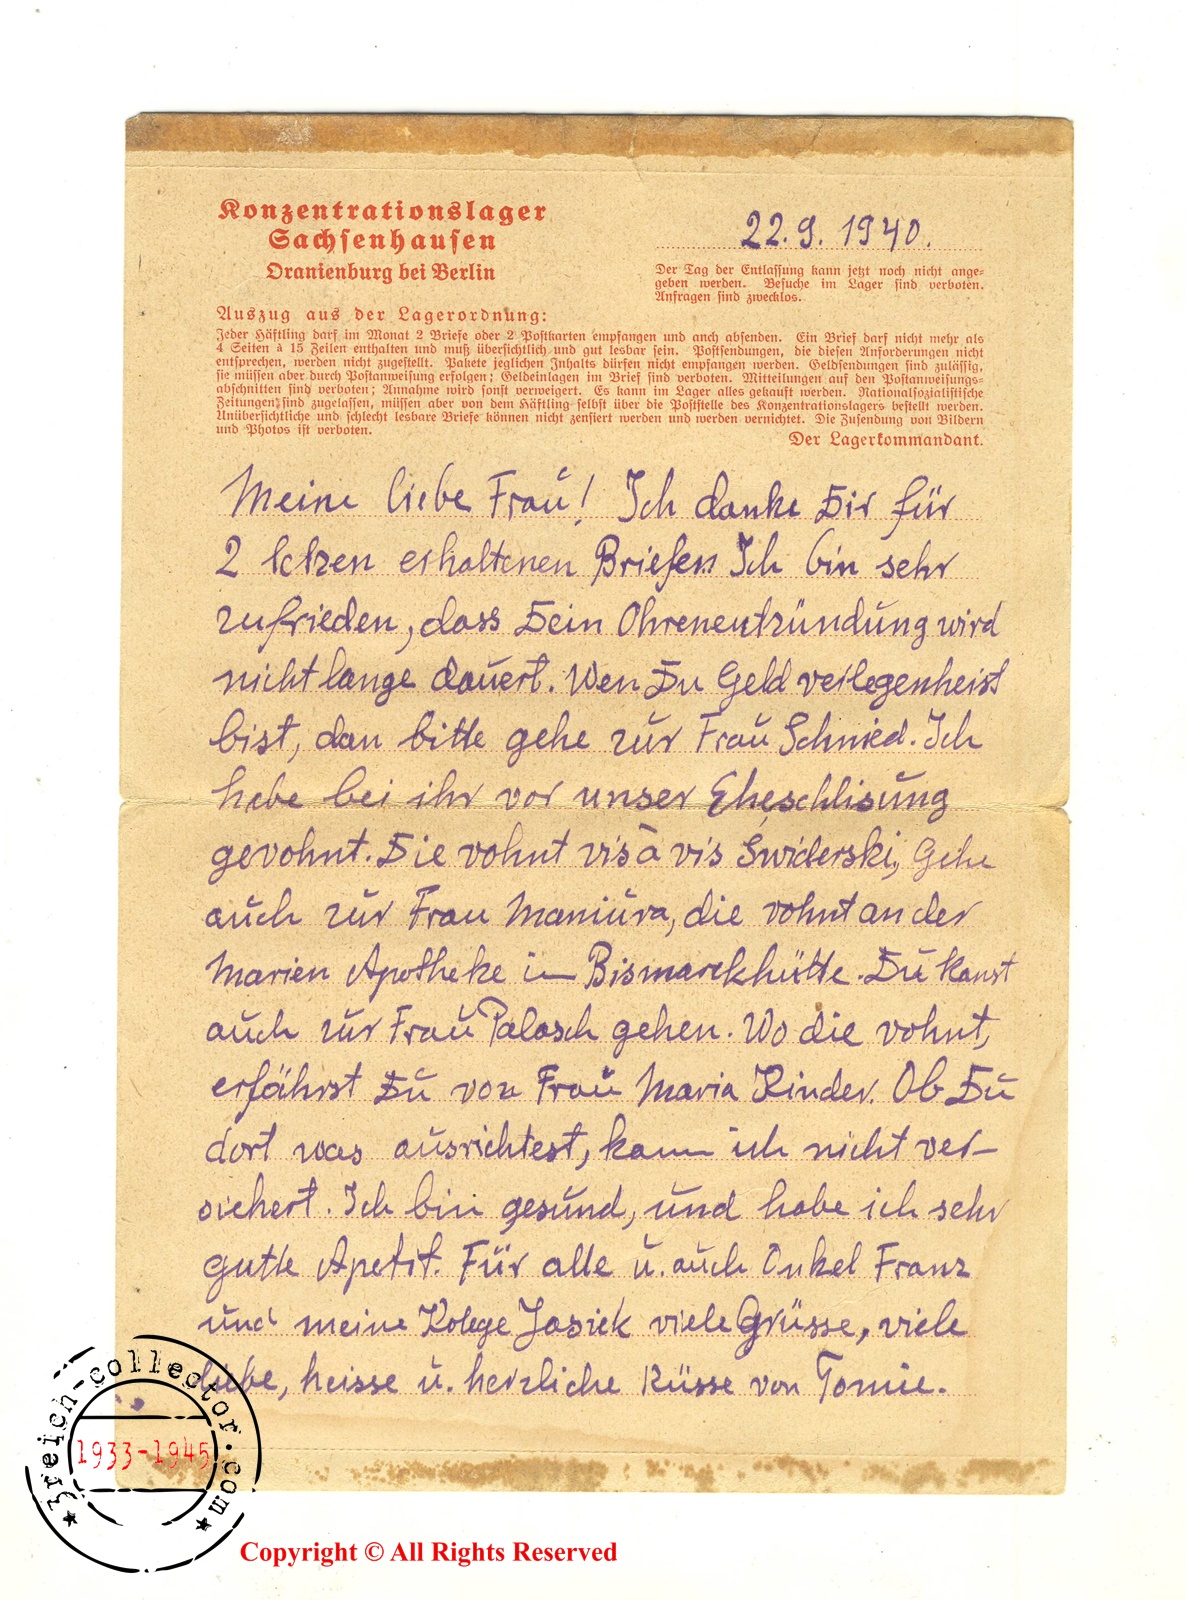 Konzentrationslager
Sachsenhausen
Oranienburg bei Berlin
22. 9. 1940.
Der Tag der Entlassung kann jetzt noch nicht ange-
geben werden. Besuche im Lager sind verboten.
Anfragen sind zwecklos.
Auszug aus der Lagerordnung:
Jeder Häftling darf im Monat 2 Briefe oder 2 Postkarten empfangen und auch absenden. Ein Brief darf nicht mehr als
4 Seiten à 15 Zeilen enthalten und muß übersichtlich und gut lesbar sein. Postsendungen, die diesen Anforderungen nicht
entsprechen, werden nicht zugestellt. Pakete jeglichen Inhalts dürfen nicht empfangen werden. Geldsendungen sind zulässig,
sie müssen aber durch Postanweisung erfolgen; Geldeinlagen im Brief sind verboten. Mitteilungen auf den Postanweisungs-
abschnitten sind verboten; Annahme wird sonst verweigert. Es kann im Lager alles gekauft werden. Nationalsozialistische
Zeitungen sind zugelassen, müssen aber von dem Häftling selbst über die Poststelle des Konzentrationslagers bestellt werden.
Unübersichtliche und schlecht lesbare Briefe können nicht zensiert werden und werden vernichtet. Die Zusendung von Bildern
und Photos ist verboten.
Der Lagerkommandant.
Meine liebe Frau! Ich danke Dir für
2 letzen erhaltenen Briefen. Ich bin sehr
zufrieden, dass Dein Ohrenentzündung wird
nicht lange dauert. Wen Du Geld verlegenheist
bist, dan bitte gehe zur Frau Schmied. Ich
habe bei ihr vor unser Eheschlisung
gevohnt. Die vohnt vis à vis Świderski, Gehe
auch zur Frau Maniura, die vohnt an der
Marien Apotheke in Bismarckhütte. Du kanst
auch zur Frau Palasch gehen. Wo die vohnt,
erfährst Du von Frau Maria Kinder. Ob Du
dort was ausrichtest, kann ich nicht ver-
sichert. Ich bin gesund, und habe ich sehr
gutte Apetit. Für alle u. auch Onkel Franz
und meine Kolege Jasiek viele Grüsse, viele
liebe, heisse u. herzliche Küsse von Tomie.
3reich-collector.com
1933-1945
Copyright © All Rights Reserved